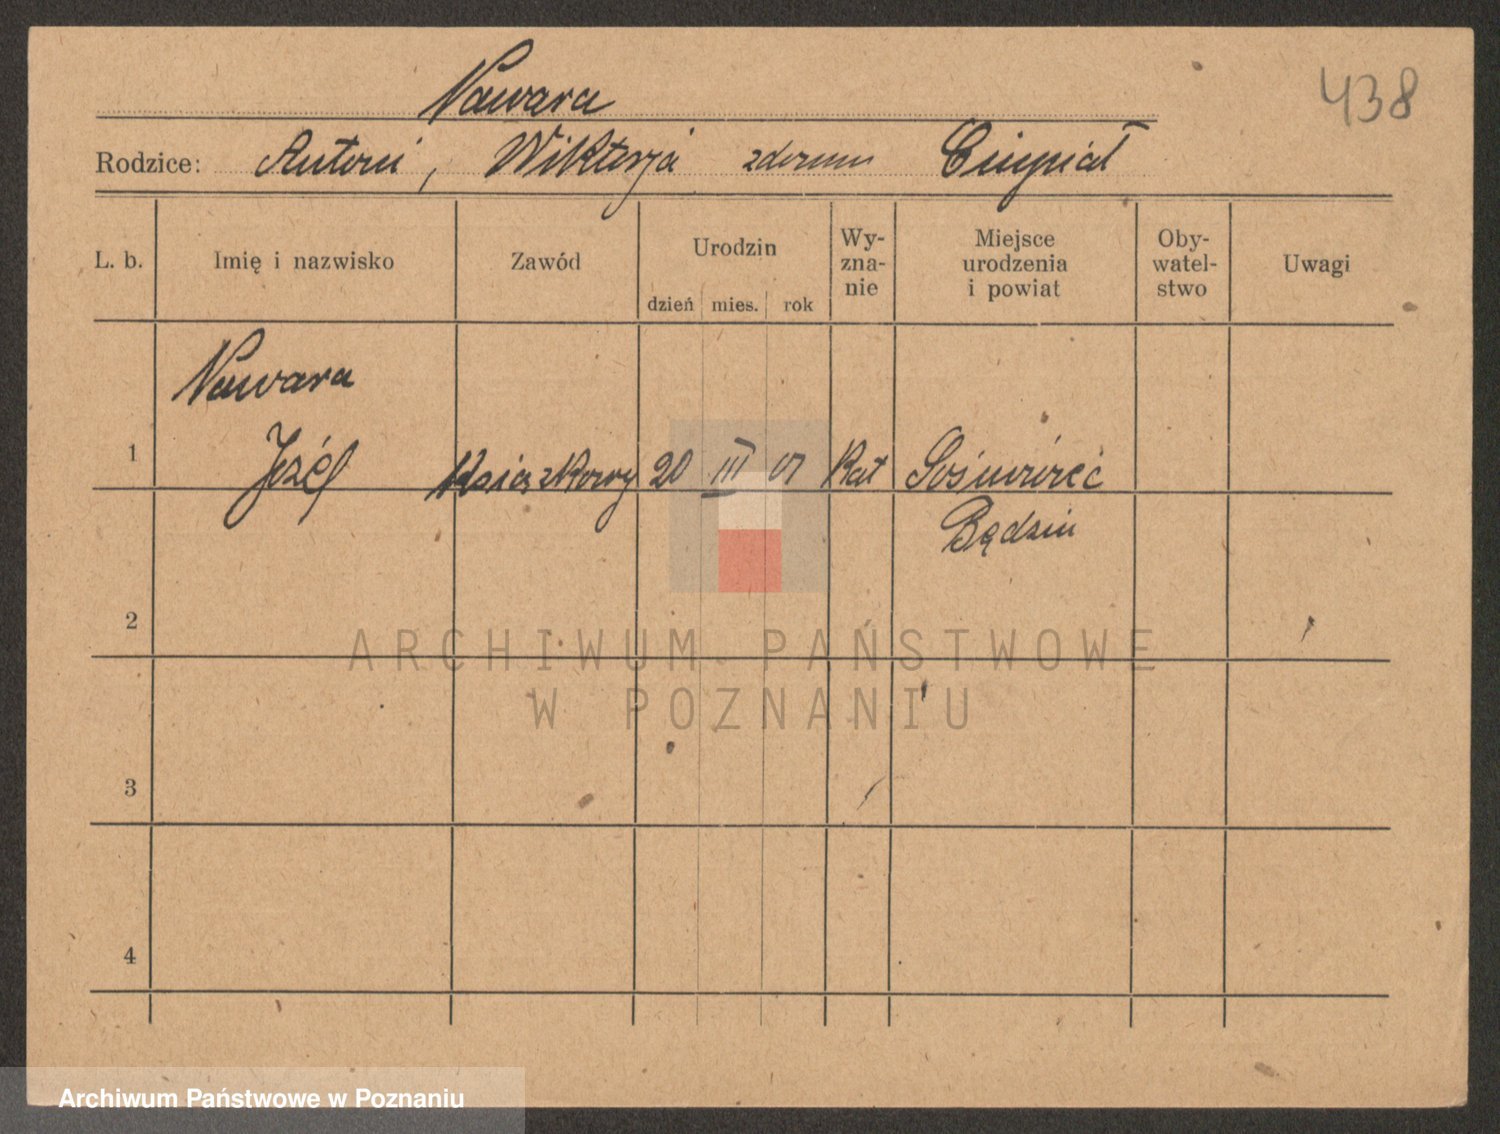 Nawara
438
Rodzice: Antoni, Wiktorja z domu
L. b. Imię i nazwisko Zawód Urodzin dzień mies. rok Wy- zna- nie Miejsce urodzenia i powiat Oby- watel- stwo Uwagi
Nawara
1 Józef Książkowy 20 III 01 Kat Sosnowiec
Będzin
2
ARCHIWUM PAŃSTWOWE
W POZNANIU
3
4
Archiwum Państwowe w Poznaniu